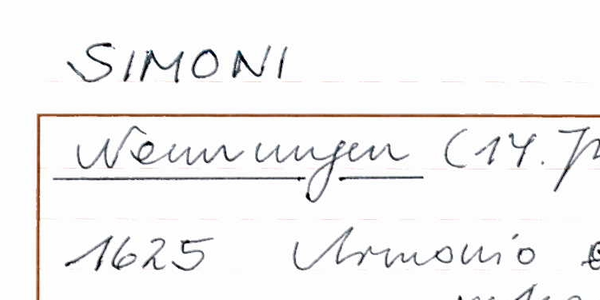 SIMONI
Nennungen (14. J
1625 Armonio